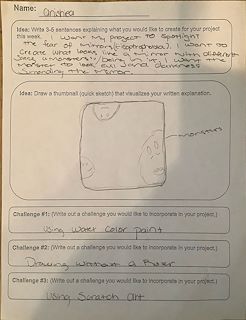 Name: Anishea
Idea: Write 3-5 sentences explaining what you would like to create for your project
this week. I want my project to spotlight
the fear of mirrors
I want to
create what looks like a mirror with different
being in it. I want the
monster to look evil and darkness
surronding the mirror.
Idea: Draw a thumbnail (quick sketch) that visualizes your written explanation.
monsters
Challenge #1: (Write out a challenge you would like to incorporate in your project.)
Using Water Color paint
Challenge #2: (Write out a challenge you would like to incorporate in your project.)
Drawing without a Ruler
Challenge #3: (Write out a challenge you would like to incorporate in your project.)
Using Scratch art